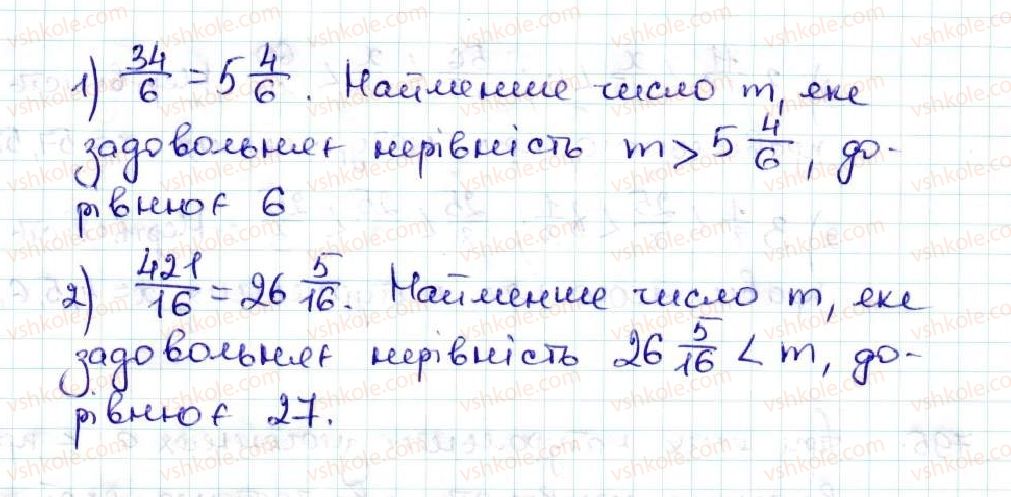 1) 34/6 = 5 4/6. Найменше число m, яке
задовольняє нерівність m > 5 4/6, до-
рівнює 6
2) 421/16 = 26 5/16. Найменше число m, яке
задовольняє нерівність 26 5/16 < m, до-
рівнює 27.